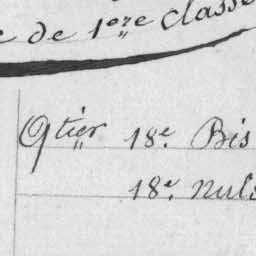 de 1ère classe
Qtier 18e Bis
18e nuls